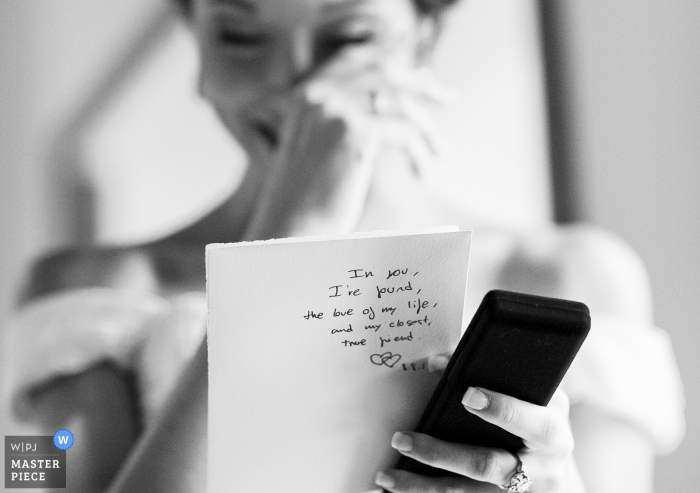 In you,
I've found,
the love of my life,
and my closest,
true friend.
W|PJ
W
MASTER
PIECE